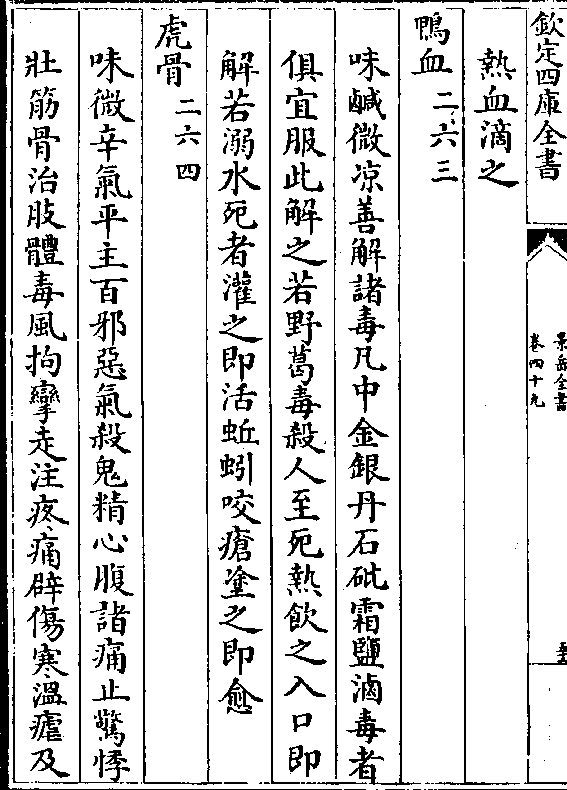 欽定四庫全書
景岳全書
卷四十九
熱血滴之
鴨血二六三
味鹹微凉善解諸毒凡中金銀丹石砒霜鹽滷毒者
俱宜服此解之若野葛毒殺人至死熱飲之入口即
解若溺水死者灌之即活蚯蚓咬瘡塗之即愈
虎骨二六四
味微辛氣平主百邪惡氣殺鬼精心腹諸痛止驚悸
壯筋骨治肢體毒風拘攣走注疼痛辟傷寒溫瘧及